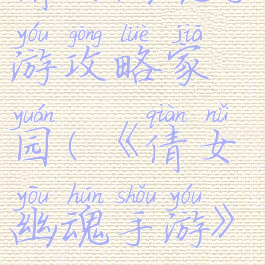 yóu gōng lüè jiā
游攻略家
yuán qiàn nǚ
园(《倩女
yōu hún shǒu yóu
幽魂手游》